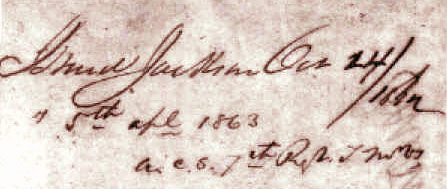 Jackson Oct 24/1862
" 5th apl 1863
a. c. s. 7th Regt.